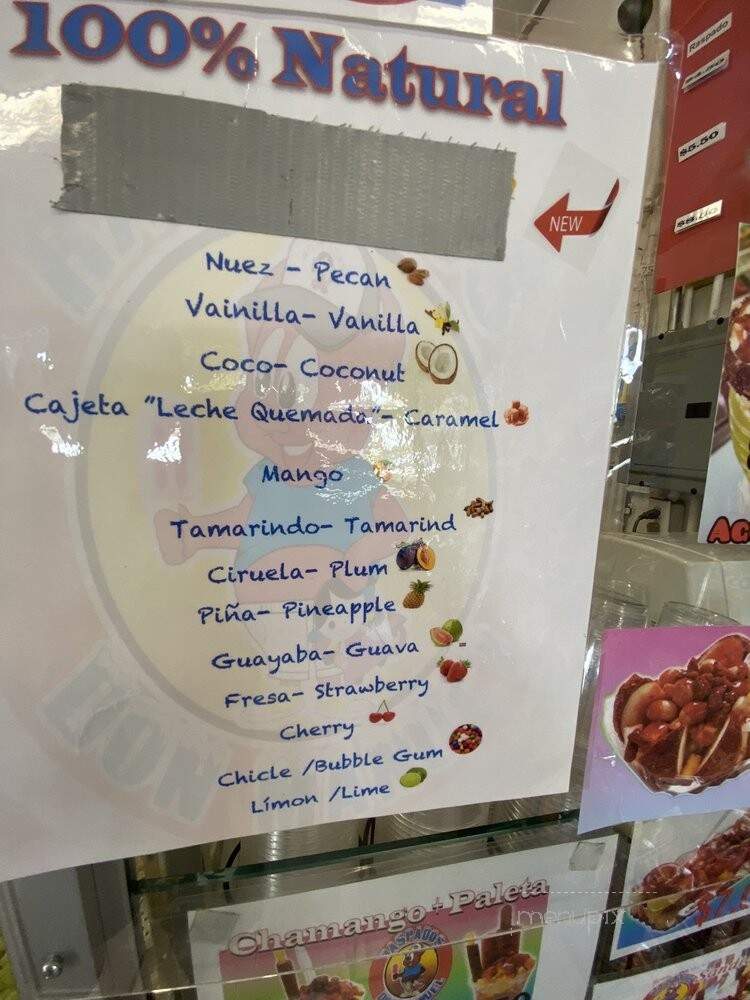 100% Natural
Raspado
$5.50
NEW
Nuez - Pecan
Vainilla- Vanilla
Coco- Coconut
Cajeta "Leche Quemada"- Caramel
Mango
Tamarindo- Tamarind
Ciruela- Plum
Piña- Pineapple
Guayaba- Guava
Fresa- Strawberry
Cherry
Chicle /Bubble Gum
Límon /Lime
AG
Chamango + Paleta
menupix
RASPADOS